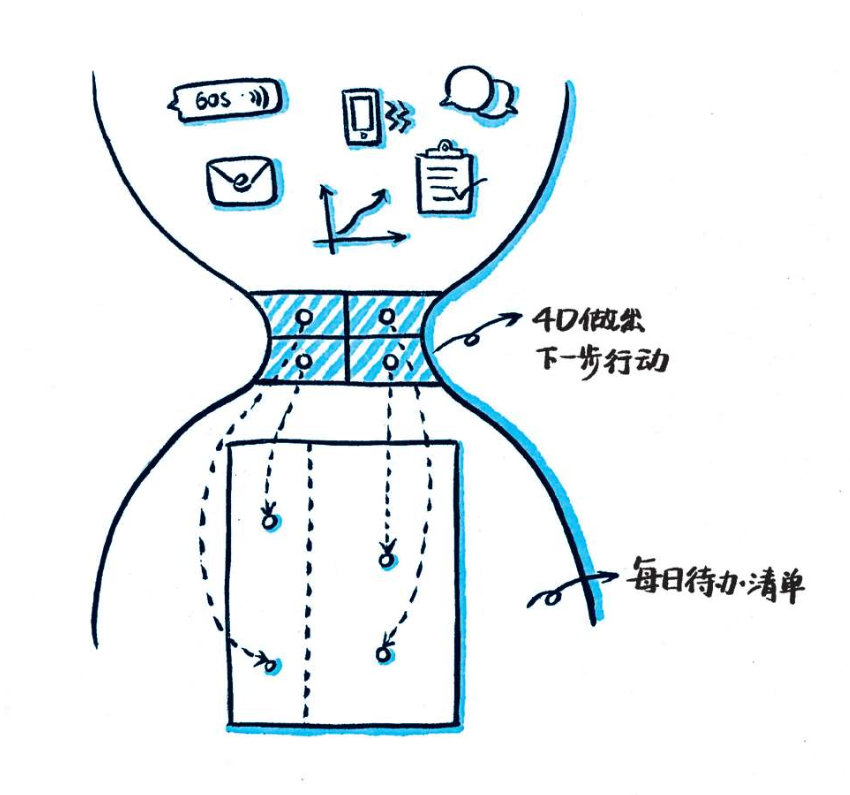 60S
4D做出
下一步行动
每日待办清单